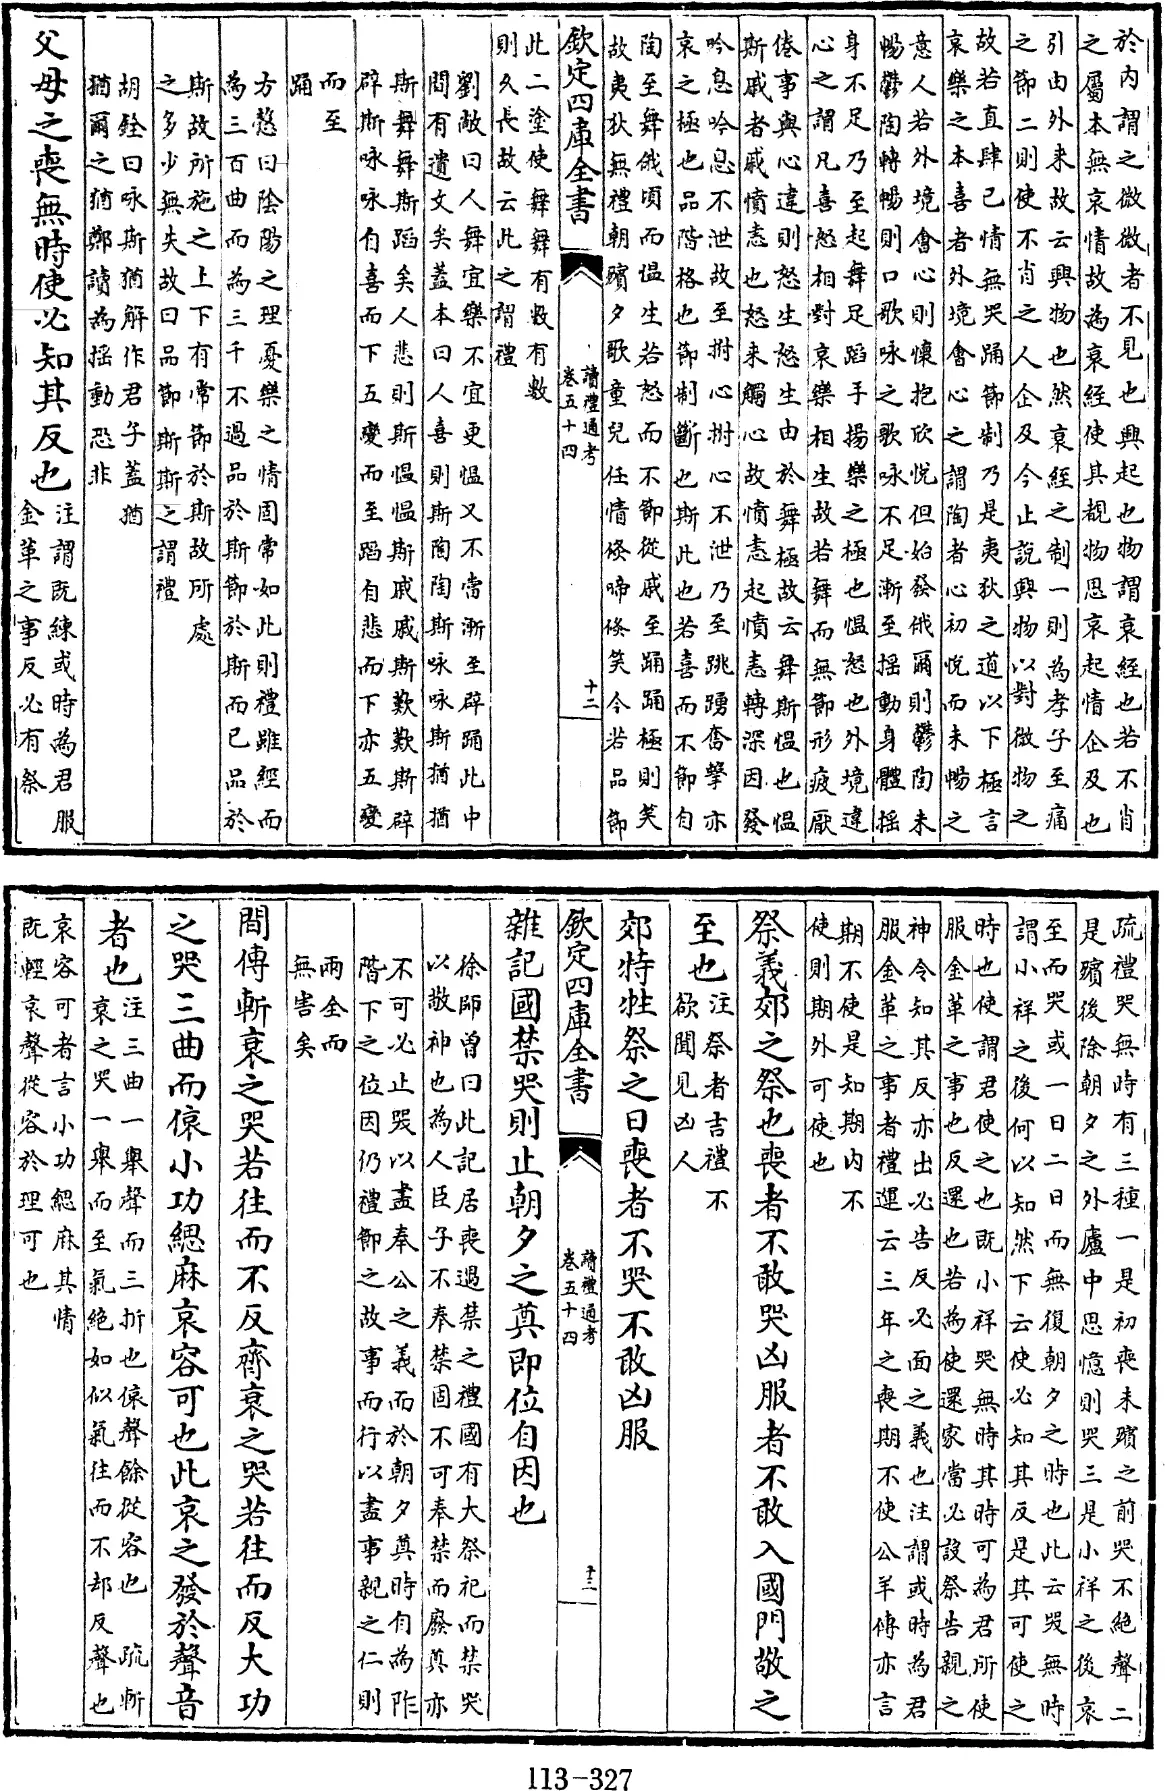 於內謂之微微者不見也興起也物謂衰絰也若不肖
之屬本無哀情故為衰絰使其覩物思哀起情企及也
引由外來故云興物也然衰絰之制一則為孝子至痛
之節二則使不肖之人企及今止說興物以對微物之
故若直肆已情無哭踊節制乃是夷狄之道以下極言
哀樂之本喜者外境會心之謂陶者心初悅而未暢之
意人若外境會心則懷抱欣悅但始發俄爾則鬱陶未
暢鬱陶轉暢則口歌咏之歌咏不足漸至摇動身體摇
身不足乃至起舞足蹈手揚樂之極也愠怒也外境違
心之謂凡喜怒相對哀樂相生故若舞而無節形疲厭
倦事與心違則怒生怒生由於舞極故云舞斯愠也愠
斯戚者戚憤恚也怒來觸心故憤恚起憤恚轉深因發
吟息吟息不泄故至拊心拊心不泄乃至跳踴奮擎亦
哀之極也品階格也節制斷也斯此也若喜而不節自
陶至舞俄頃而愠生若怒而不節從戚至踊踊極則笑
故夷狄無禮朝殯夕歌童兒任情倏啼倏笑今若品節
欽定四庫全書
讀禮通考
卷五十四
十二
此二塗使舞舞有數有數
則久長故云此之謂禮
劉敞曰人舞宜樂不宜更愠又不當漸至辟踊此中
間有遺文矣蓋本曰人喜則斯陶陶斯咏咏斯猶猶
斯舞舞斯蹈矣人悲則斯愠愠斯戚戚斯歎歎斯辟
辟斯咏咏自喜而下五變而至蹈自悲而下亦五變
而至
踊
方慤曰陰陽之理憂樂之情固常如此則禮雖經而
為三百曲而為三千不過品於斯節於斯而已品於
斯故所施之上下有常節於斯故所處
之多少無失故曰品節斯斯之謂禮
胡銓曰咏斯猶解作君子蓋猶
猶爾之猶鄭讀為摇動恐非
父母之喪無時使必知其反也
注謂既練或時為君服
金革之事反必有祭
疏禮哭無時有三種一是初喪未殯之前哭不絶聲二
是殯後除朝夕之外廬中思憶則哭三是小祥之後哀
至而哭或一日二日而無復朝夕之時也此云哭無時
謂小祥之後何以知然下云使必知其反是其可使之
時也使謂君使之也既小祥哭無時其時可為君所使
服金革之事也反還也若為使還家當必設祭告親之
神令知其反亦出必告反必面之義也注謂或時為君
服金革之事者禮運云三年之喪期不使公羊傳亦言
期不使是知期内不
使則期外可使也
祭義郊之祭也喪者不敢哭凶服者不敢入國門敬之
至也
注祭者吉禮不
欲聞見凶人
郊特牲祭之日喪者不哭不敢凶服
欽定四庫全書
讀禮通考
卷五十四
十三
雜記國禁哭則止朝夕之奠即位自因也
徐師曾曰此記居喪遇禁之禮國有大祭祀而禁哭
以敬神也為人臣子不奉禁固不可奉禁而廢奠亦
不可必止哭以盡奉公之義而於朝夕奠時自為阼
階下之位因仍禮節之故事而行以盡事親之仁則
兩全而
無害矣
間傳斬衰之哭若往而不反齊衰之哭若往而反大功
之哭三曲而偯小功緦麻哀容可也此哀之發於聲音
者也
注三曲一舉聲而三折也偯聲餘從容也 疏斬
衰之哭一舉而至氣絶如似氣往而不却反聲也
哀容可者言小功緦麻其情
既輕哀聲從容於理可也
113-327